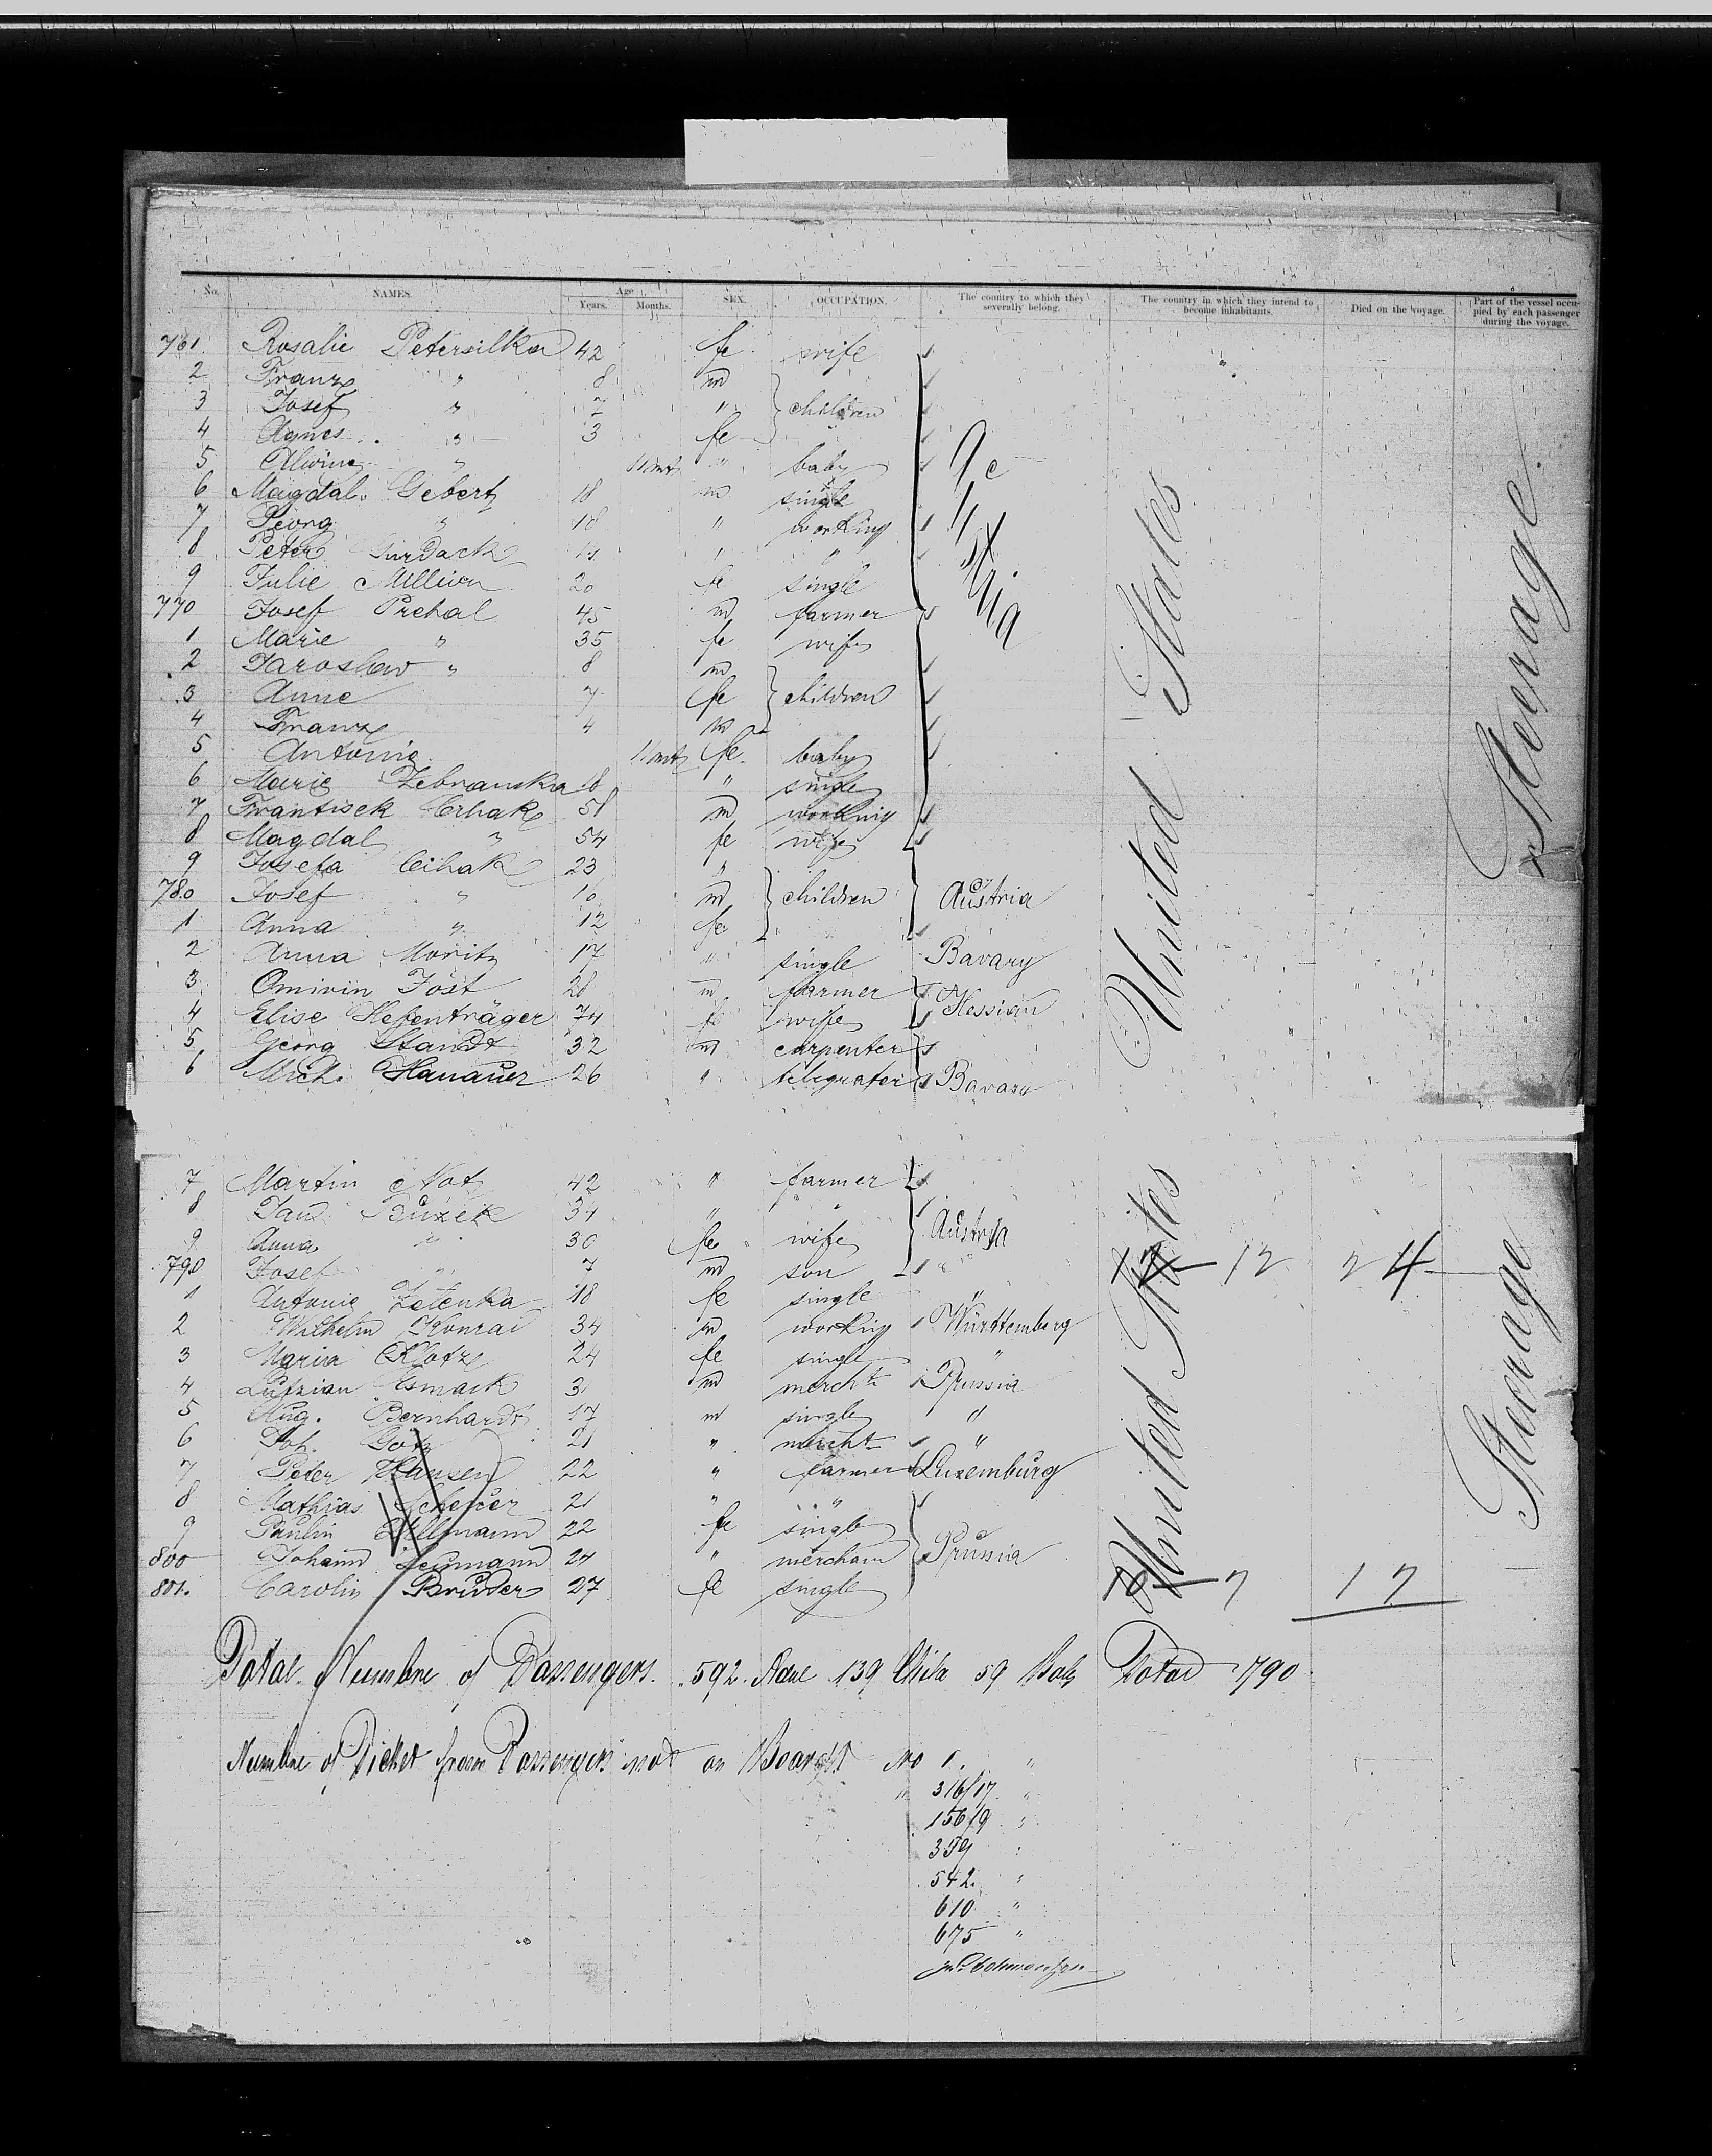 No. NAMES. Age Years. Months. SEX. OCCUPATION. The country to which they severally belong. The country in which they intend to become inhabitants. Died on the voyage. Part of the vessel occupied by each passenger during the voyage.
761. Rosalie Petersilka 42 fe wife
2 Franz " 8 m
3 Josef " 7 " children
4 Agnes " 3 fe
5 Alwine " 11 mt " baby
6 Magdal. Gebert 18 m single
7 Georg " 18 " working
8 Peter "
9 Julie 20 fe single
770 Josef Prchal 45 m farmer
1 Marie " 35 fe wife
2 Jaroslaw " 8 m
3 Anne 7 fe children
4 Franz 4 m
5 Antonie 11 mt fe baby
6 Marie Zebranska 18 " single
7 Frantisek 58 m working
8 Magdal " 54 fe wife
9 Josefa Cihak 23 "
780 Josef " 10 m children Austria
1 Anna " 12 fe
2 Anna Moritz 17 " single Bavary
3 Jöst 28 m farmer
4 Elise Hefenträger 74 fe wife Hessian
5 Georg Standt 32 m carpenter
6 Mich. Hanauer 26 " telegrafer Bavary
United States
Steerage
7 Martin Not 42 " farmer
8 Jan Buzek 34 " "
9 Anna " 30 fe wife Austria
790 Josef " 7 m son "
12 24
1 Antonie Zelenka 18 fe single "
2 Wilhelm Konrad 34 m working Württemberg
3 Maria Klotz 24 fe single "
4 31 m mercht Prussia
5 Aug. Bernhardt 17 m single "
6 Joh. Götz 21 " mercht "
7 Peter Hansen 22 " farmer Luxemburg
8 Mathias 21 " "
9 Paulin 22 fe single
800 Johann 24 " merchant Prussia
801. Carolin Bruder 27 fe single
7 17
United States
Steerage
Total Number of Passengers. 592. Adul 139 Child 59 Baby Total 790
Number of Ticket from Passengers not on Board No 1. "
" 316/17. "
156/9 "
359 "
542. "
610 "
675 "